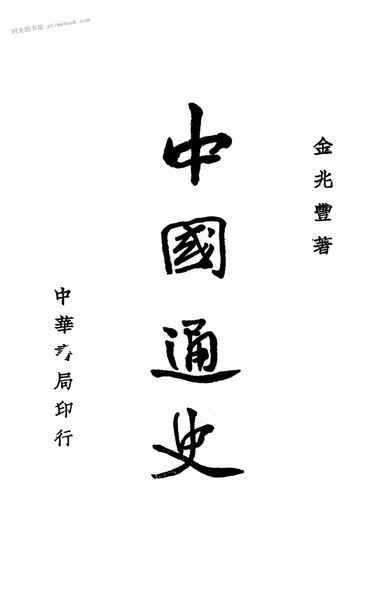 金兆豐著
中國通史
中華局印行